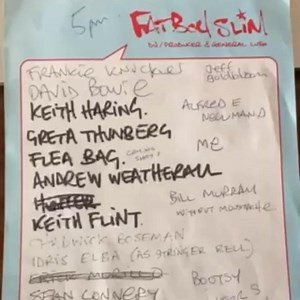 5pm
FATBOY SLIM
DJ/PRODUCER & GENERAL LOSO
FRANKIE KNUCKLES
JEFF GOLDBLUM
DAVID BOWIE
KEITH HARING.
ALFRED E
NEWMAND
GRETA THUNBERG
FLEA BAG.
ME
ANDREW WEATHERALL
KEITH FLINT.
BILL MURRAY
WITHOUT MOUSTACHE
CHADWICK BOSEMAN
IDRIS ELBA (AS STRINGER BELL)
BOOTSY
SEAN CONNERY